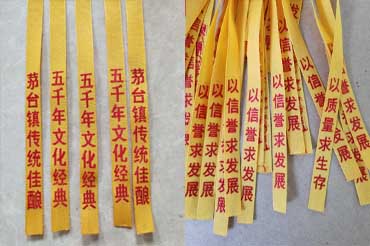 茅台镇传统佳酿
五千年文化经典
五千年文化经典
五千年文化经典
茅台镇传统佳酿
求发展
以信誉求发展
以信誉求发展
以信誉求发展
以信誉求发展
以信誉求发展
以信誉求发展
以质量求生存
以信誉求发展